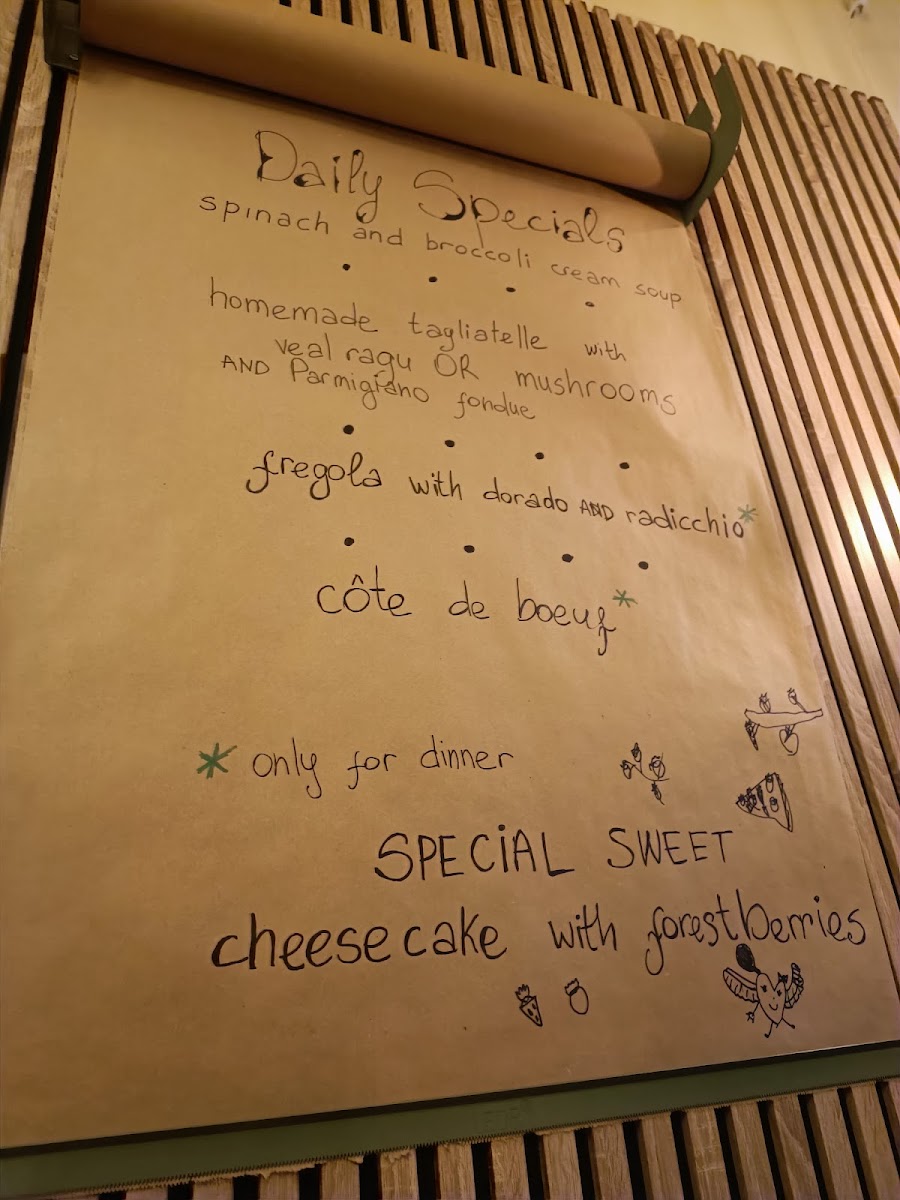 Daily Specials
spinach and broccoli cream soup
homemade tagliatelle with
veal ragu OR mushrooms
AND Parmigiano fondue
fregola with dorado AND radicchio*
côte de boeuf*
* only for dinner
SPECIAL SWEET
cheesecake with forestberries